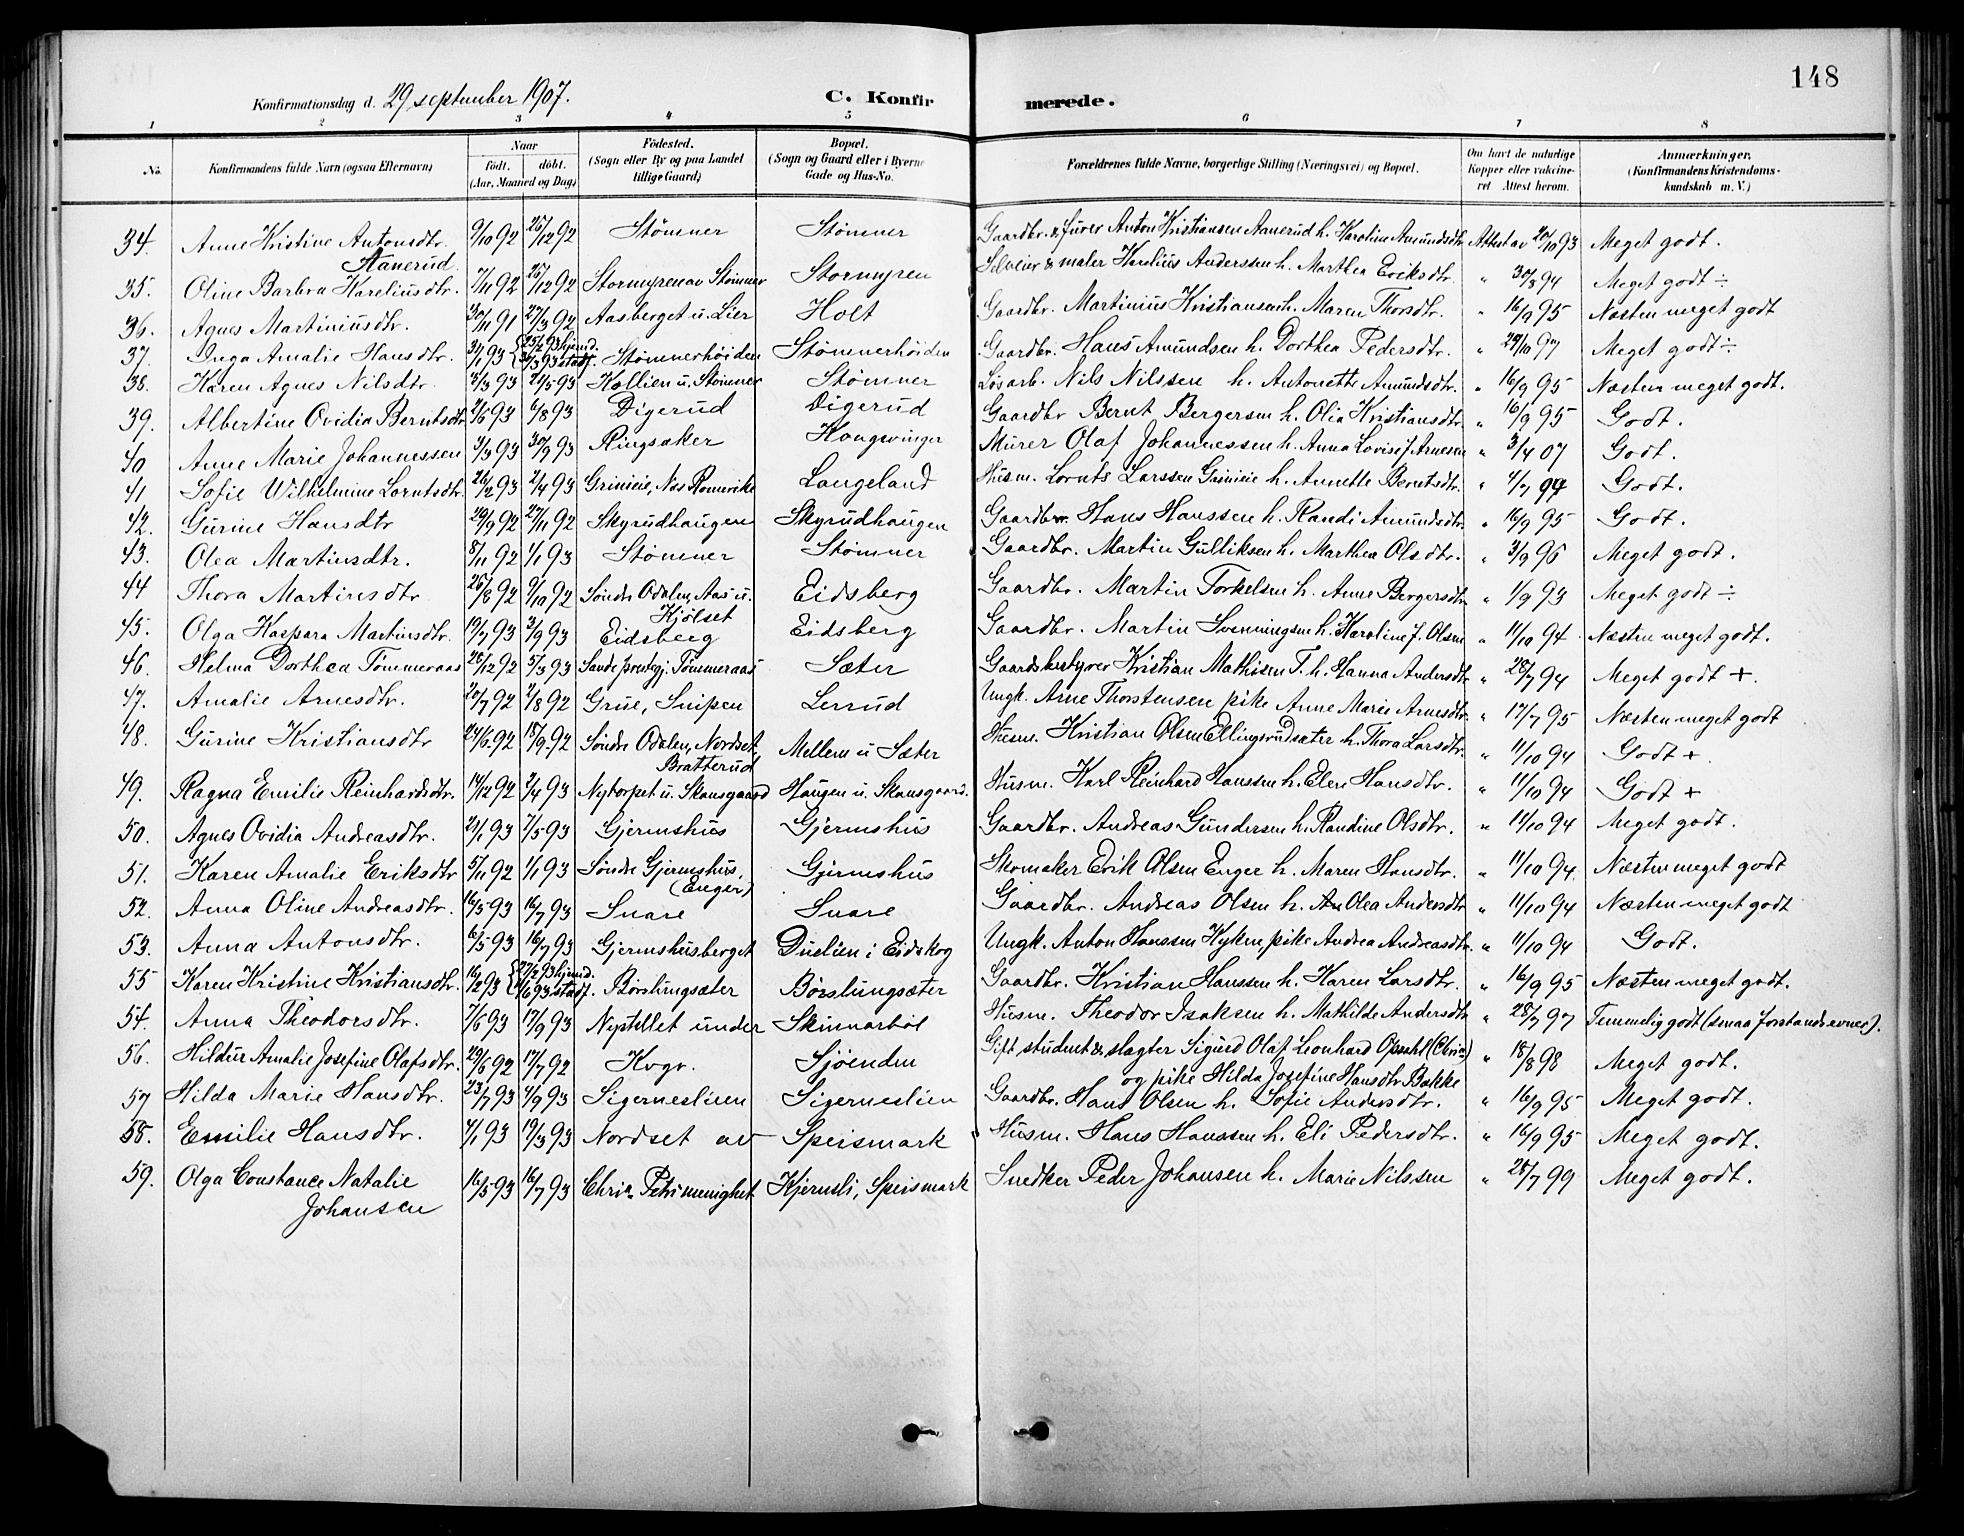 148
Konfirmationsdag d. 29 september 1907. C. Konfirmerede.
1 2 3 4 5 6 7 8
No. Konfirmandens fulde Navn (ogsaa Efternavn) Naar født. døbt. (Aar, Maaned og Dag) Fødested. (Sogn eller By og paa Landet tillige Gaard) Bopæl. (Sogn og Gaard eller i Byerne Gade og Hus-No. Forældrenes fulde Navne, borgerlige Stilling (Næringsvei) og Bopæl. Om havt de naturlige Kopper eller vakcineret Attest herom. Anmærkninger. (Konfirmandens Kristendomskundskab m. V.)
34. Anne Kristine Antonsdtr. 9/10 92 26/12 92 Stømner Stømner Gaardbr. & furer Anton Kristiansen Aanerud h. Karoline Amundsdtr. Attest av 20/10 93 Meget godt.
Aanerud
35. Oline Barbra Kareliusdtr. 7/11 92 26/12 92 Stormyren av Stømner Stormyren Selveier & maler Karelius Anderssen h. Marthea Eriksdtr. " 30/8 94 Meget godt ÷
36. Agnes Martiniusdtr. 30/11 91 27/3 92 Aasberget u. Lier Holt Gaardbr. Martinius Kristiansen h. Maren Thorsdtr. " 16/9 95 Næsten meget godt
37. Inga Amalie Hansdtr. 3/1 93 {25/2 93 hjemd. 31/3 93 stadf. Stømnerhøiden Stømnerhøiden Gaardbr. Hans Amundsen h. Dorthea Pedersdtr. " 29/10 97 Meget godt ÷
38. Karen Agnes Nilsdtr. 2/3 93 21/5 93 Kollien u. Stømner Stømner Løsarb. Nils Nilssen h. Antonette Amundsdtr. " 16/9 95 Næsten meget godt.
39. Albertine Ovidia Berntsdtr 2/6 93 6/8 93 Digerud Digerud Gaardbr Bernt Bergersen h. Olia Kristiansdtr. " 16/9 95 Godt.
40 Anne Marie Johannessen 4/3 93 30/9 93 Ringsaker Kongsvinger Murer Olaf Johannessen h. Anna Lovise f. Arnesen " 3/4 07 Godt.
41 Sofie Wilhelmine Lorntsdtr. 26/2 93 2/4 93 Grinieie, Nes Romerike Langeland Husm. Lornts Larssen h. Annette Berntsdtr. " 4/7 94 Godt.
42. Gurine Hansdtr 29/9 92 27/11 92 Skyrudhaugen Skyrudhaugen Gaardbr. Hans Hanssen h. Randi Amundsdtr. " 16/9 95 Godt.
43. Olea Martinsdtr. 8/11 92 1/1 93 Stømner Stømner Gaardbr. Martin Gulliksen h. Marthea Olsdtr. " 3/9 96 Meget godt.
44 Thora Martinsdtr 26/8 92 9/10 92 Søndre Odalen, Aas u. Eidsberg Gaardbr. Martin Torkelsen h. Anne Bergersdtr " 1/9 93 Meget godt ÷
Kjølset
45. Olga Kaspara Martinsdtr. 19/7 93 3/9 93 Eidsberg Eidsberg Gaardbr. Martin Svenningsen h. Karoline f. Olsen " 11/10 94. Næsten meget godt.
46. Helma Dorthea Tømmeraas 26/12 92 5/3 93 Sande prestegj. Tømmeraas Sæter Gaardsbestyrer Kristian Mathisen T. h. Hanna Andersdtr " 28/7 94 Meget godt +.
47. Amalie Arnesdtr. 20/7 92 2/8 92 Grue, Snipen Lerrud Ungk. Arne Thorstensen pike Anne Marie Arnesdtr. " 17/7 95 Næsten meget godt
48. Gurine Kristiansdtr 24/6 92 18/9 92 Søndre Odalen, Nordset, Mellem u Sæter Husm. Kristian Olsen Ellingsrudsæter h. Thora Larsdtr. " 11/10 94 Godt +
Bratterud
49. Ragna Emilie Reinhardsdtr. 14/12 92 2/4 93 Nytorpet u. Skansgaard Haugen u. Skansgaard. Husm. Karl Reinhard Hanssen h. Elen Hansdtr. " 11/10 94 Godt +
50. Agnes Ovidia Andreasdtr. 21/1 93 7/5 93 Gjermshus Gjermshus Gaardbr. Andreas Gundersen h. Randine Olsdtr. " 11/10 94 Meget godt.
51. Karen Amalie Eriksdtr 5/11 92 1/1 93 Søndre Gjermshus, Gjermshus Skomaker Erik Olsen Enger h. Maren Hansdtr. " 11/10 94. Næsten meget godt
(Enger)
52. Anna Oline Andreasdtr. 16/5 93 16/7 93 Snare Snare Gaardbr. Andreas Olsen h. An Olea Andersdtr " 11/10 94 Næsten meget godt
53. Anna Antonsdtr. 6/5 93 16/7 93 Gjermshusberget Duslien i Eidskog Ungk. Anton Hanssen Kyken pike Andrea Andreasdtr. " 11/10 94 Godt.
55 Karen Kristine Kristiansdtr. 16/2 93 {27/2 93 hjemd. 1/6 93 stadf. Børslungsæter Børslungsæter Gaardbr. Kristian Hanssen h. Karen Larsdtr. " 16/9 95 Næsten meget godt.
54. Anna Theodorsdtr. 7/6 93 17/9 93 Nystellet under Skinnarbøl Husm. Theodor Isaksen h. Mathilde Andersdtr " 28/7 97 Temmelig godt (smaa forstandsevner).
56. Hildur Amalie Josefine Olafsdtr. 29/6 92 17/7 92 Kvgr. Sjøenden Gift student & slagter Sigurd Olaf Leonhard Opsahl (Chria) " 18/8 98 Meget godt.
og pike Hilda Josefine Hansdtr Bakke
57 Hilda Marie Hansdtr. 23/7 93 4/9 93 Sigerneslien Sigerneslien Gaardbr. Hans Olsen h. Sofie Andersdtr. " 16/9 95 Meget godt.
58. Emilie Hansdtr. 4/1 93 19/3 93 Nordset av Speismark Husm. Hans Hanssen h. Eli Pedersdtr. " 16/9 95 Meget godt.
59. Olga Constance Natalie 16/5 93 16/7 93 Chria Petri menighet Kjernsli, Speismark Snedker Peder Johansen h. Marie Nilssen " 28/7 99 Meget godt.
Johansen